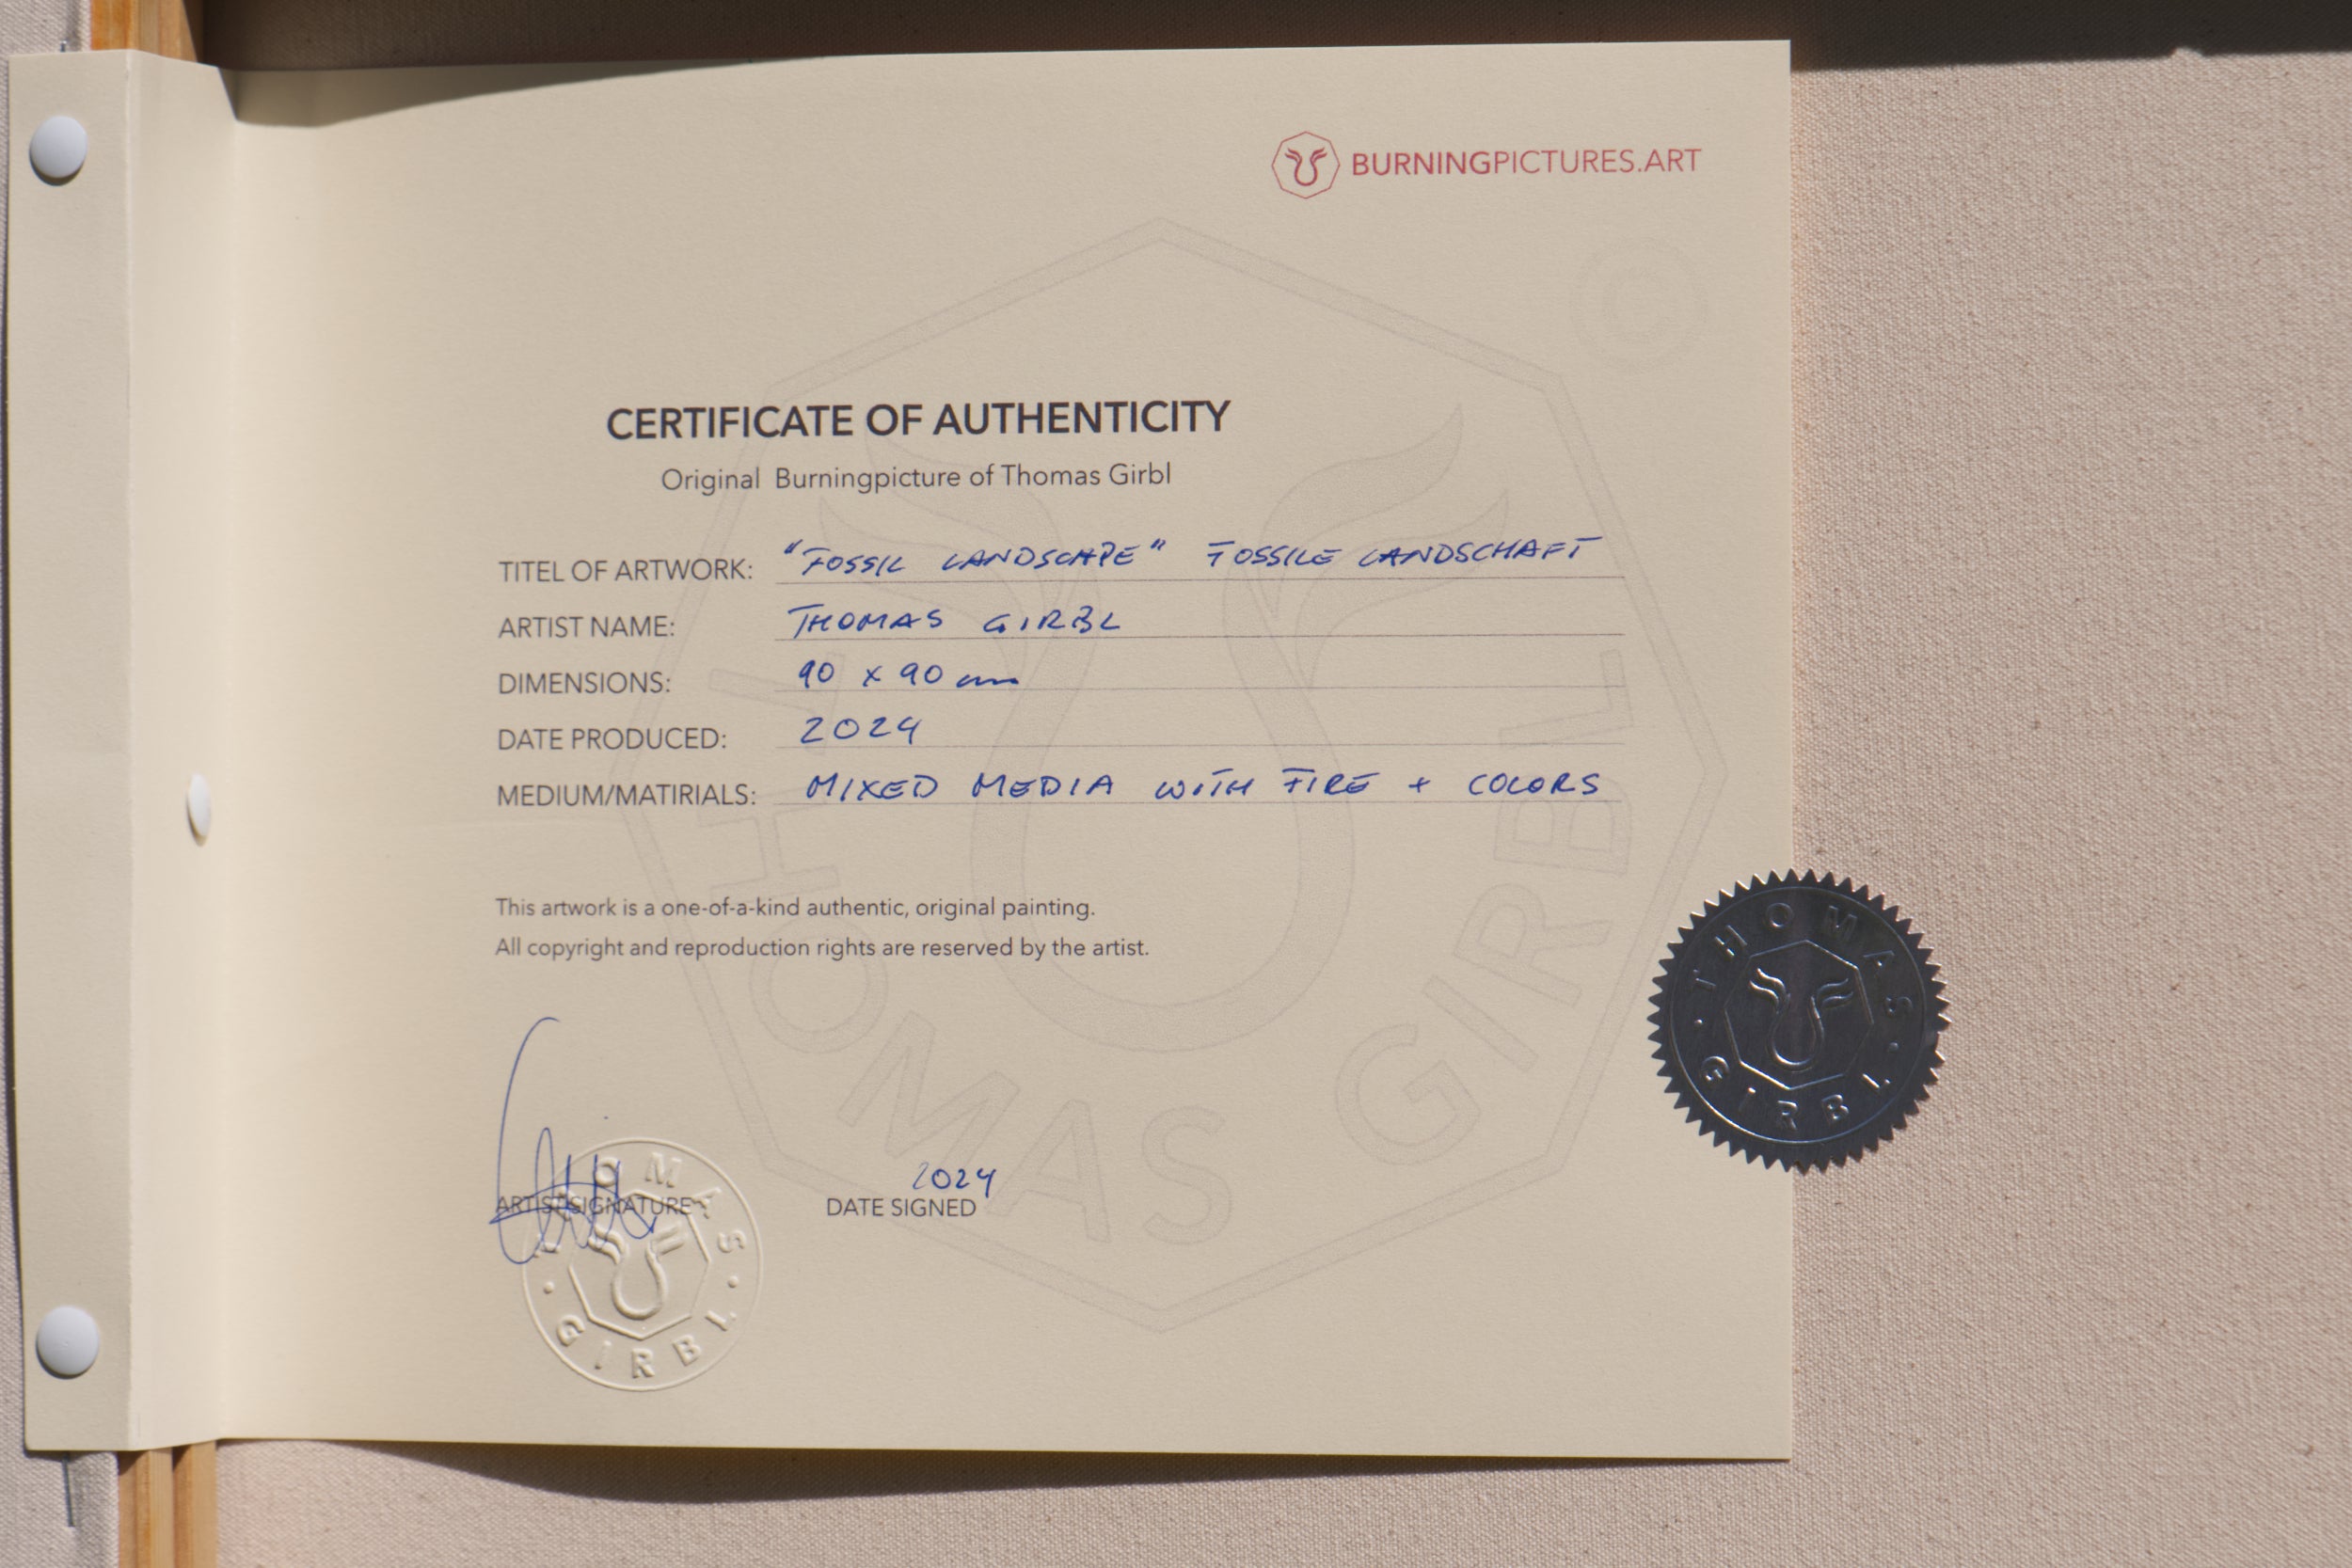 BURNINGPICTURES.ART
CERTIFICATE OF AUTHENTICITY
Original Burningpicture of Thomas Girbl
TITEL OF ARTWORK: "FOSSIL LANDSCAPE" FOSSILE LANDSCHAFT
ARTIST NAME: THOMAS GIRBL
DIMENSIONS: 90 x 90 cm
DATE PRODUCED: 2024
MEDIUM/MATIRIALS: MIXED MEDIA WITH FIRE + COLORS
This artwork is a one-of-a-kind authentic, original painting.
All copyright and reproduction rights are reserved by the artist.
THOMAS GIRBL
©
THOMAS · GIRBL ·
2024
ARTIST SIGNATURE DATE SIGNED
THOMAS · GIRBL ·